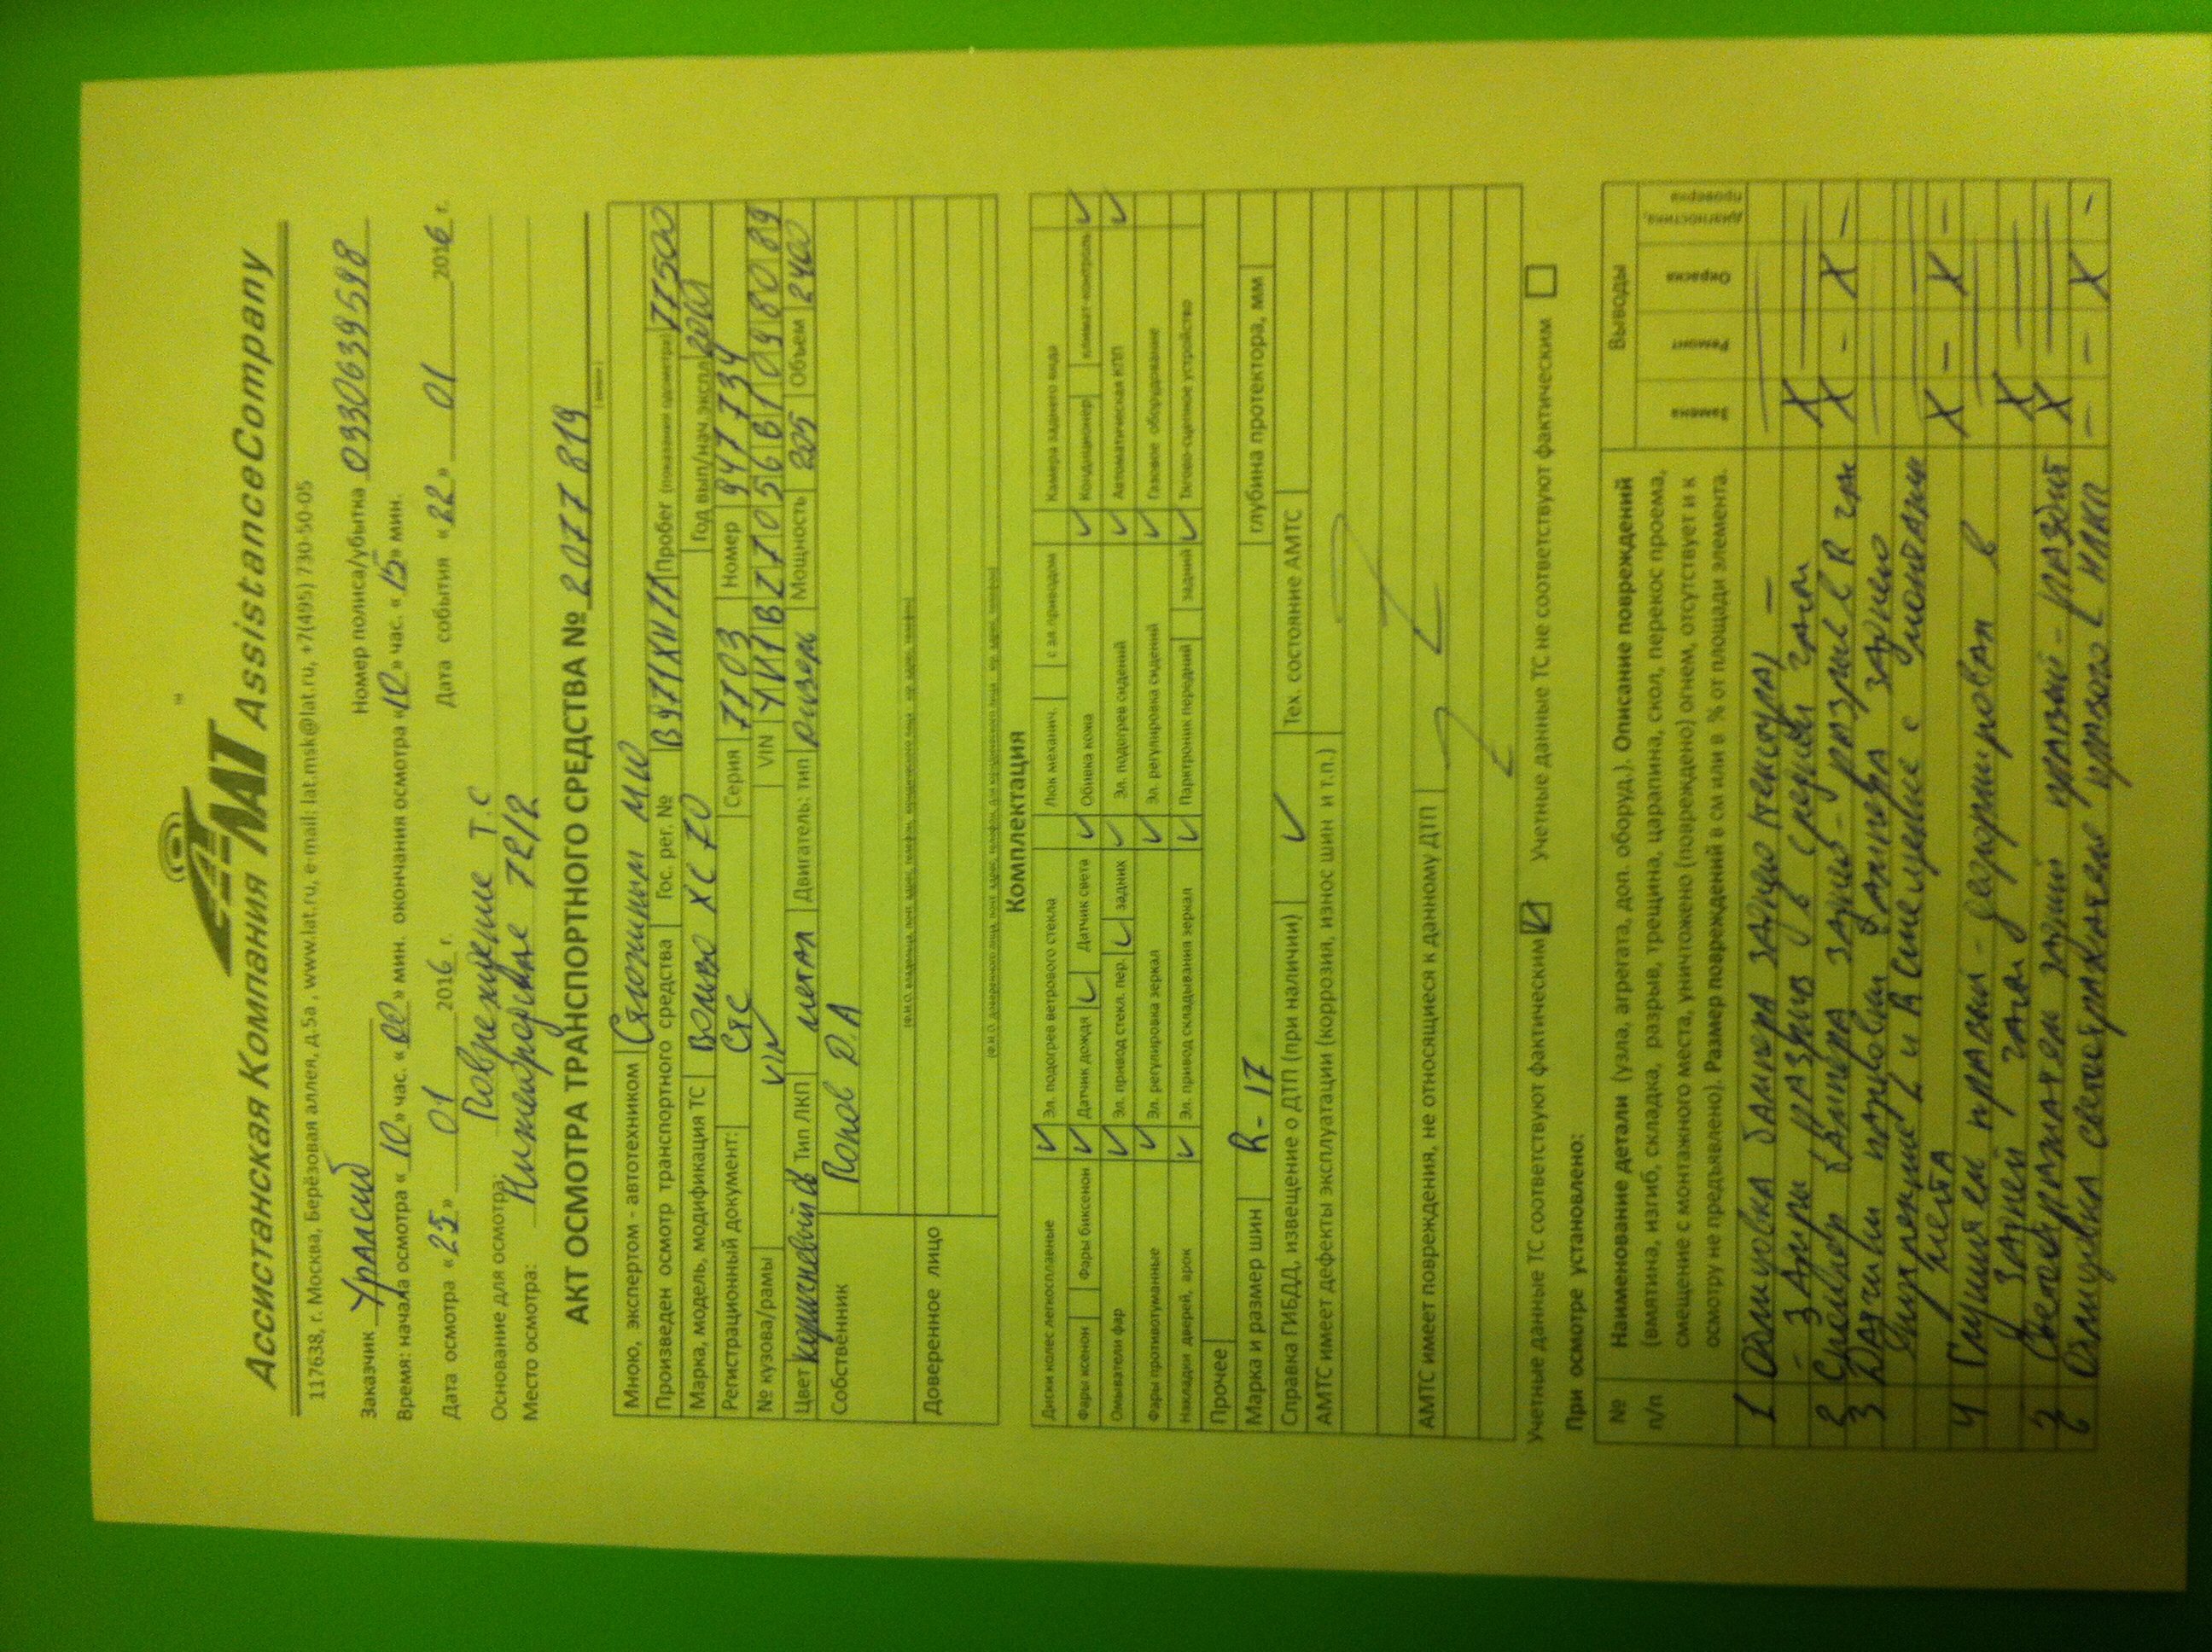 ЛАТ
Ассистанская Компания ЛАТ AssistanceCompany
117638, г. Москва, Берёзовая аллея, д.5а , www.lat.ru, e-mail: lat.msk@lat.ru, +7(495) 730-50-05
Заказчик Уралсиб Номер полиса/убытка
Время: начала осмотра «10» час. «00» мин. окончания осмотра «10» час. «15» мин.
Дата осмотра «25» 01 2016 г. Дата события «22» 01 2016 г.
Основание для осмотра: Повреждение Т.С
Место осмотра: Нижегородская 72/2
АКТ ОСМОТРА ТРАНСПОРТНОГО СРЕДСТВА № 2077819
Мною, экспертом - автотехником М.Ю
Произведен осмотр транспортного средства Гос. рег. № Пробег (показания одометра) 77500
Марка, модель, модификация ТС Вольво ХС 70 Год вып/нач.экспл.
Регистрационный документ: СТС Серия 7703 Номер 947734
№ кузова/рамы VIN VIN
Цвет коричневый Тип ЛКП метал Двигатель: тип дизель Мощность 205 Объем 2400
Собственник Попов Д.А
(Ф.И.О. владельца, почт. адрес, телефон, юридического лица - юр. адрес, телефон)
Доверенное лицо
Комплектация
Диски колес легкосплавные Эл. подогрев ветрового стекла Люк механич. с эл.приводом Камера заднего вида
Фары ксенон Фары биксенон Датчик дождя Датчик света Обивка кожа Кондиционер климат-контроль
Омыватели фар Эл. привод стекл. пер. задних Эл. подогрев сидений Автоматическая КПП
Фары противотуманные Эл. регулировка зеркал Эл. регулировка сидений Газовое оборудование
Накладки дверей, арок Эл. привод складывания зеркал Парктроник передний задний Тягово-сцепное устройство
Прочее
Марка и размер шин R-17 глубина протектора, мм
Справка ГИБДД, извещение о ДТП (при наличии) Тех. состояние АМТС
АМТС имеет дефекты эксплуатации (коррозия, износ шин и т.п.)
АМТС имеет повреждения, не относящиеся к данному ДТП
Учетные данные ТС соответствуют фактическим Учетные данные ТС не соответствуют фактическим
При осмотре установлено:
№ п/п Наименование детали (узла, агрегата, доп. оборуд.). Описание повреждений Выводы
(вмятина, изгиб, складка, разрыв, трещина, царапина, скол, перекос проема,
смещение с монтажного места, уничтожено (повреждено) огнем, отсутствует и к
осмотру не предъявлено). Размер повреждений в см или в % от площади элемента.
Замена Ремонт Окраска Диагностика, проверка
1 Облицовка бампера заднего
- задиры, разрыв в средней части
2 Спойлер бампера задний - разрыв в R части
3 Датчики парковки бампера заднего
внутренние L и R смещение с
места
4 Глушитель правый - деформирован в
задней части
Светоотражатель задний правый - разбит
6 светоотражателя правого НЛКП